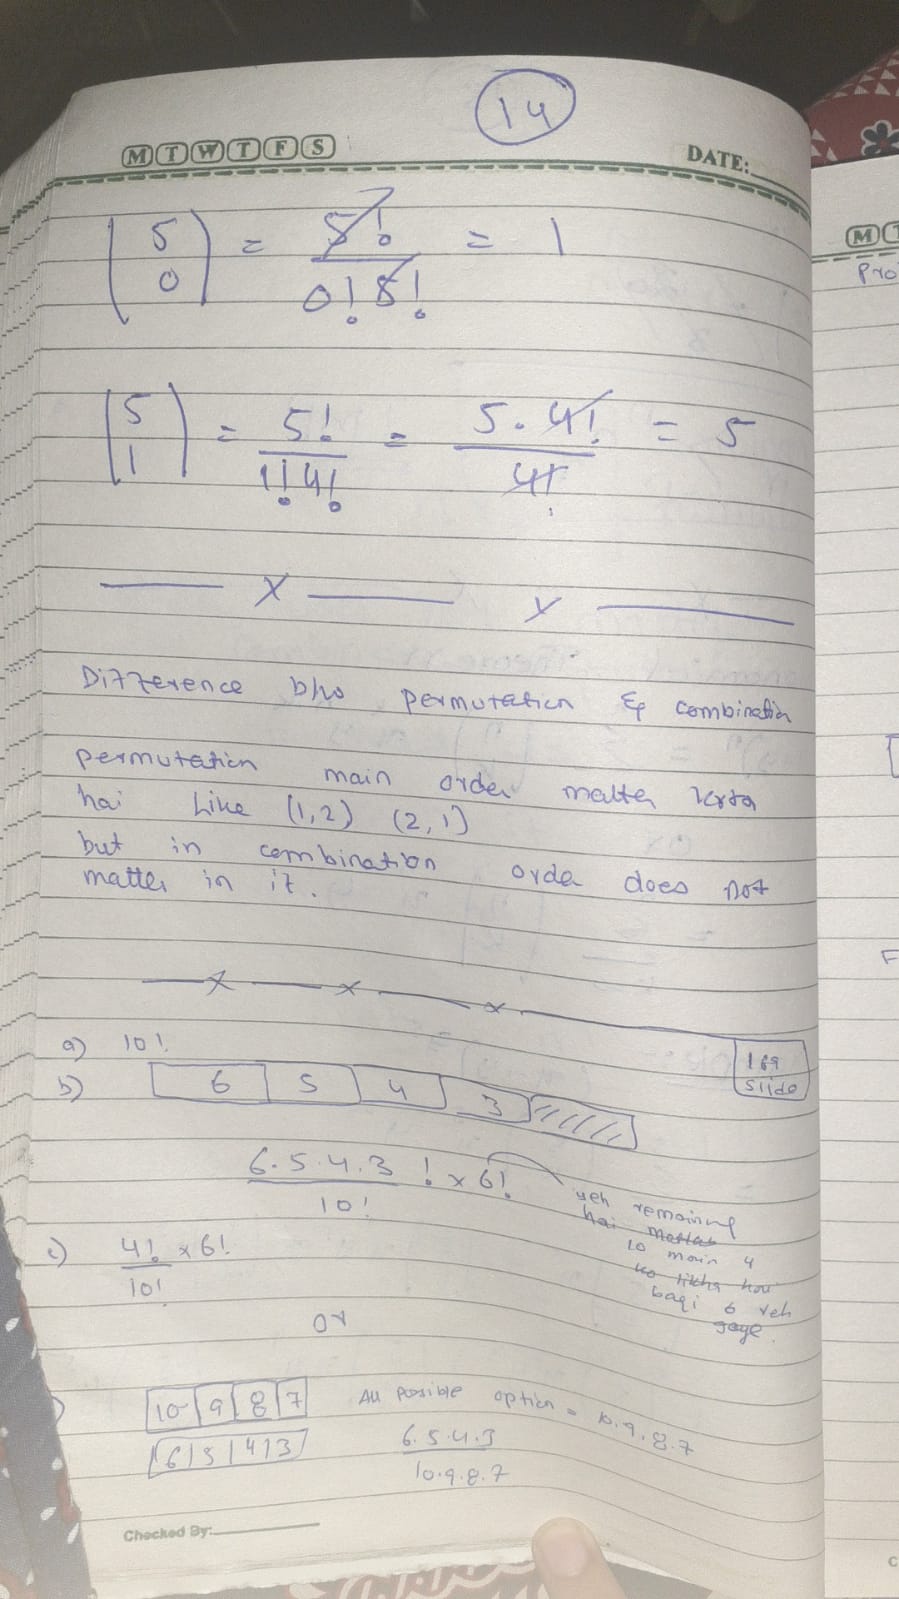 14
M T W T F S
DATE:
(5 0) = 5! / 0! 5! = 1
(5 1) = 5! / 1! 4! = 5.4! / 4! = 5
x x
Difference b/w permutation & combination
permutation main order matter krta
hai Like (1,2) (2,1)
but in combination order does not
matter in it.
x x x
169
slide
a) 10!
b) 6 5 4 3
6.5.4.3 ! x 6!
10!
yeh remaining
hai matlab
10 main 4
ko likha hai
baqi 6 reh
gaye.
c) 4! x 6!
10!
or
10 9 8 7 All possible option = 10.9.8.7
6 5 4 3 6.5.4.3
10.9.8.7
Checked By:
M
Pro
F
C